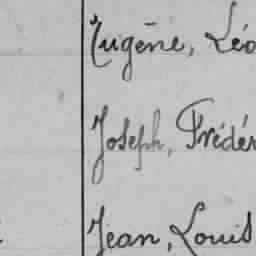 Eugène, Léo
Joseph, Frédér
Jean, Louis